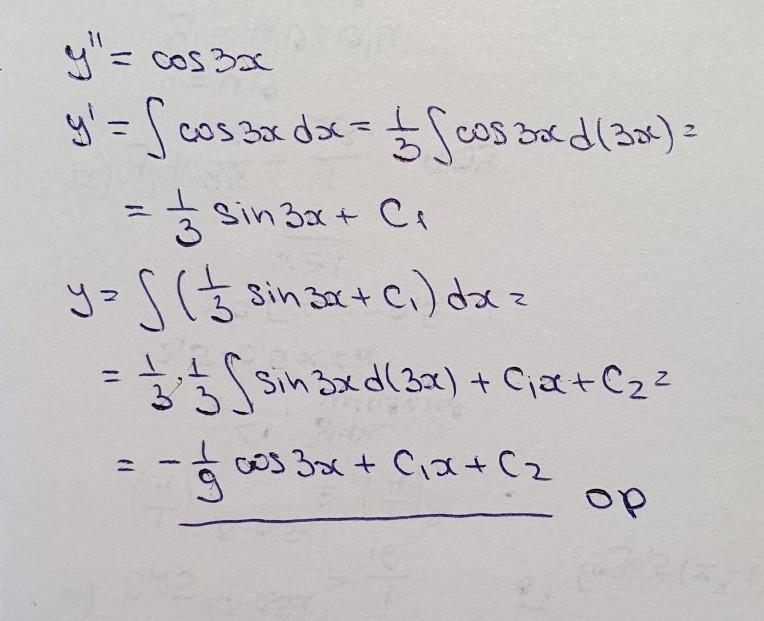 y'' = cos3x
y' = ∫ cos3x dx = 1/3 ∫ cos3x d(3x) =
= 1/3 sin3x + C₁
y = ∫ (1/3 sin3x + C₁) dx =
= 1/3 · 1/3 ∫ sin3x d(3x) + C₁x + C₂ =
= - 1/9 cos3x + C₁x + C₂ ор